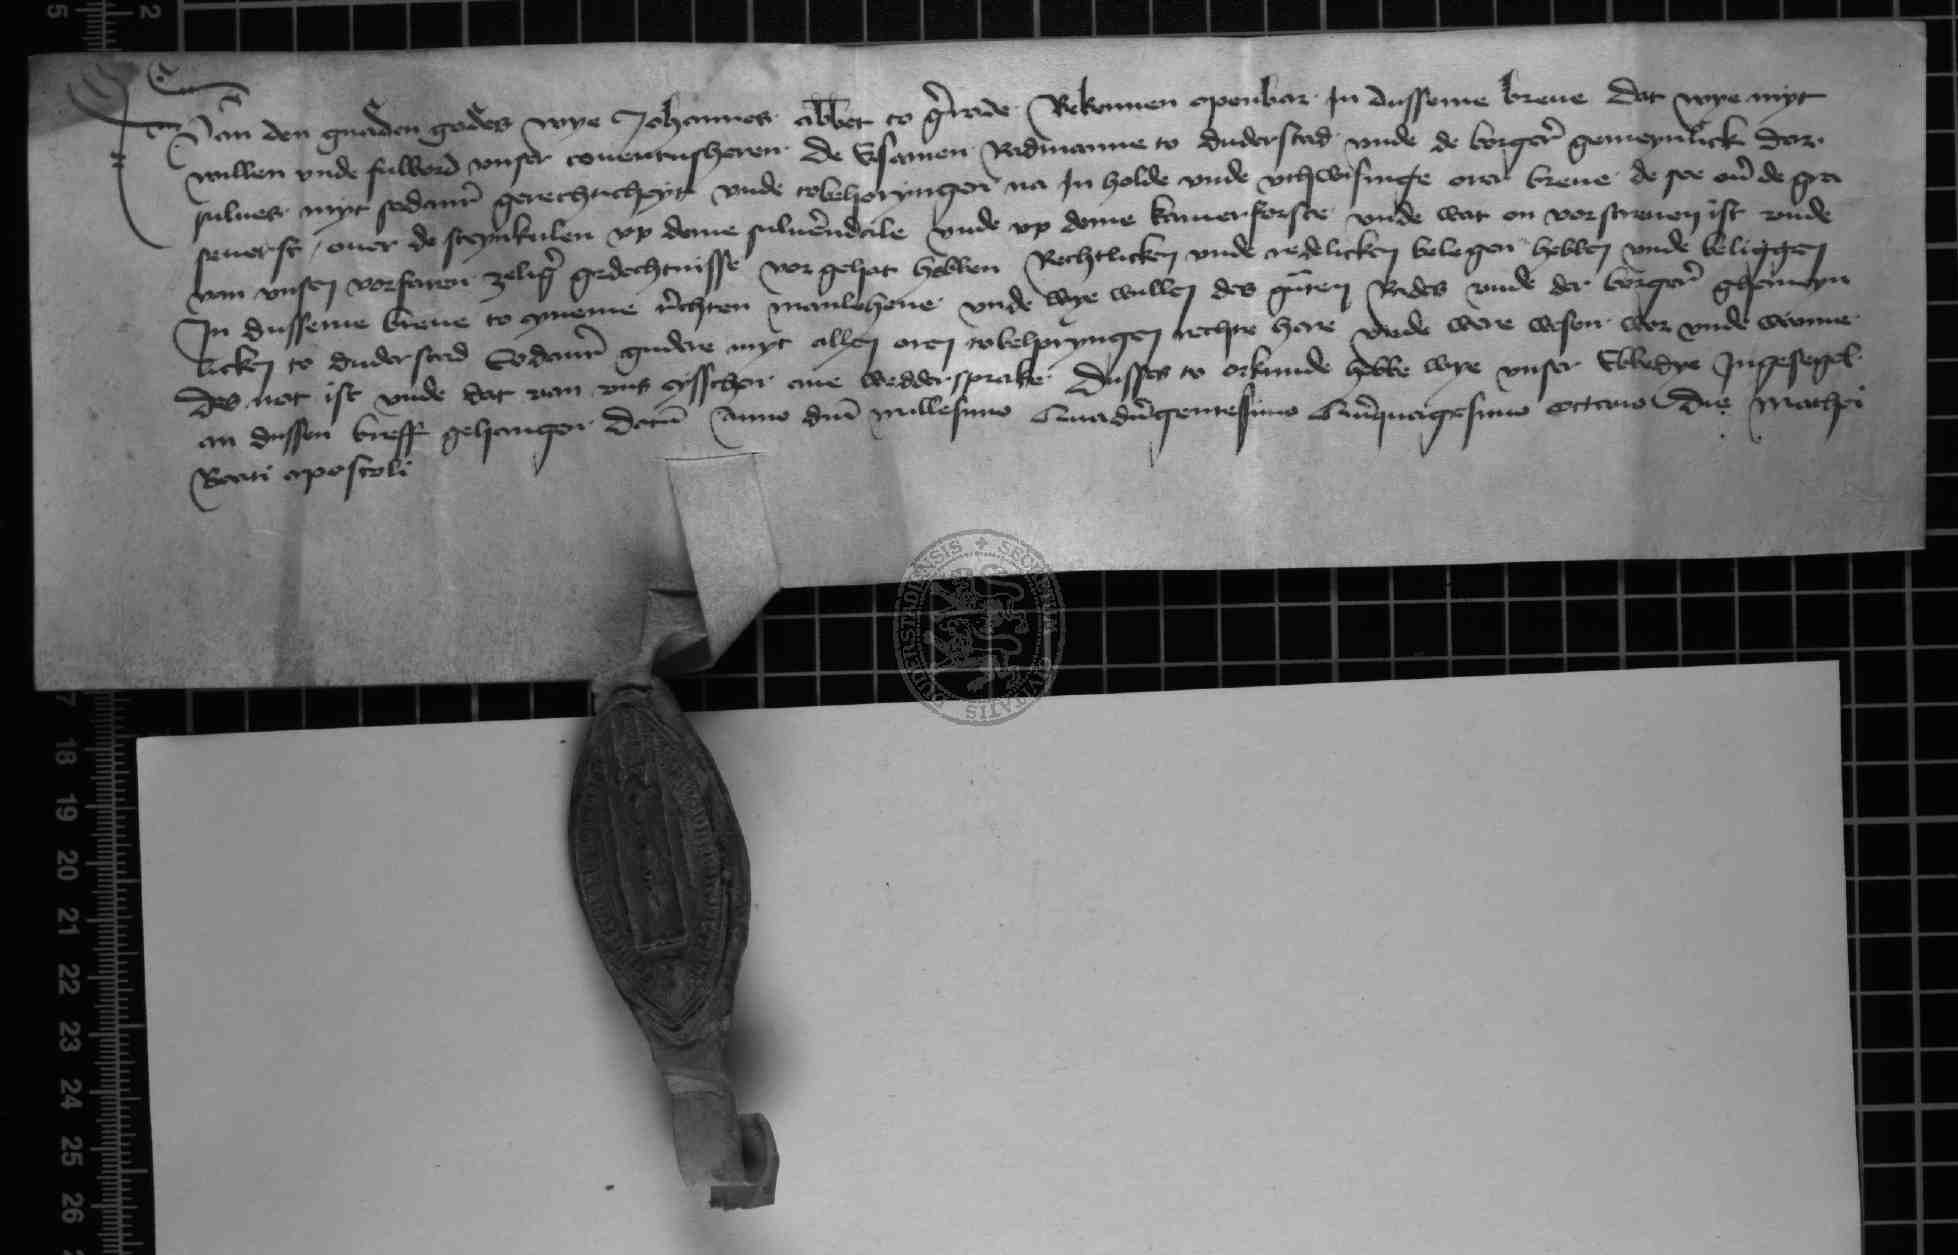 Van den gnaden godes wye Johannes abbet to g̃rade Bekennen openbar In dusseme breue dat wye myt
willen vnde fulword vnser conuentusheren de Ersamen Radmanne to duderstad vnde de borger̃ gemeynlick dar
sulues myt sodanñ gerechticheyt vnde tobehoryngen na In holde vnde vthwisinge orer breue de see ou̾ de gra
seuerst / ouer de steynkulen vp deme sulue̾ndale vnde vp deme kamerforste vnde wat on vorscreuen ist vnde
van vnsen vorfaren zelig̾ gedechtnisse vor gehat hebben Rechtlicken vnde redelicken belegen hebben vnde beliggen
In dusseme breue to eyneme re̾chten manlehene vnde wye wullen des guten Rades vnde der borger̃ ghemeyn
licken to duderstad Sodanñ gudere myt allen oren tobehoryngen rechte here vnde were wesen wor vnde wanne
des not ist vnde dat van vns eysschen ane wedder sprake Dusses to orkunde hebbe wye vnser Ebbedye Ingesegel
an dussen breff gehangen Datũ Anno dñi millesimo Quadri̾ngentessimo Quinquagesimo octauo die Mathei
Beati apostoli
SECRETUM CIVITATIS DUDERSTADIENSIS
17
18
19
20
21
22
23
24
25
26